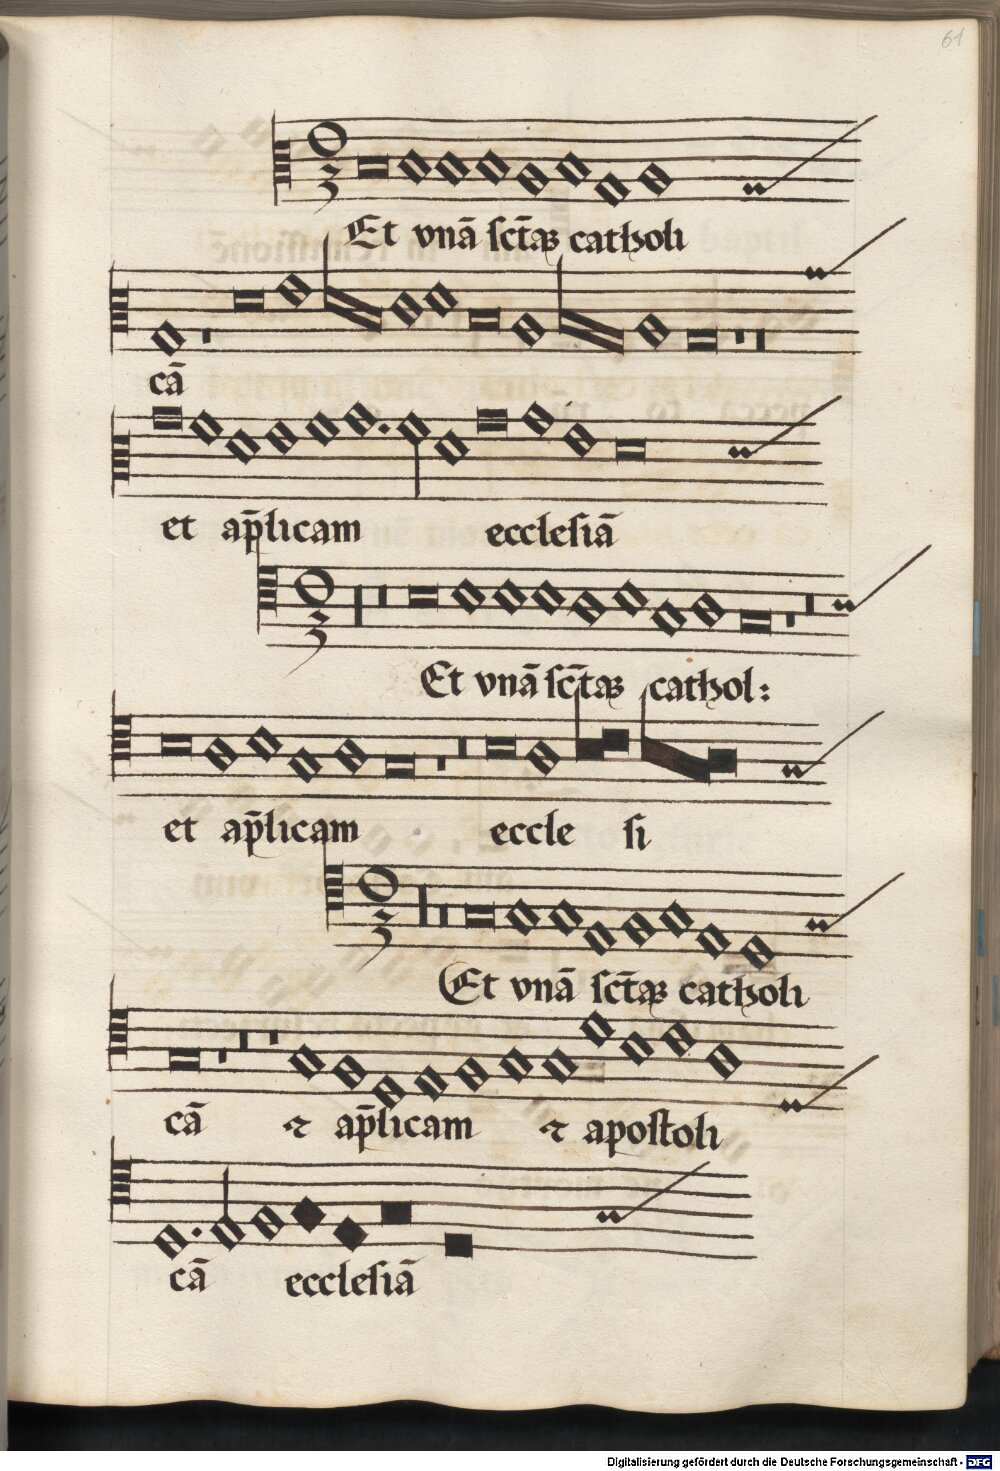 61
Et vnā sct̄aʒ catholi
cā
et ap̄licam ecclesiā
Et vnā sct̄aʒ cathol:
et ap̄licam eccle si
Et vnā sct̄aʒ catholi
cā ⁊ ap̄licam ⁊ apostoli
cā ecclesiā
Digitalisierung gefördert durch die Deutsche Forschungsgemeinschaft - DFG